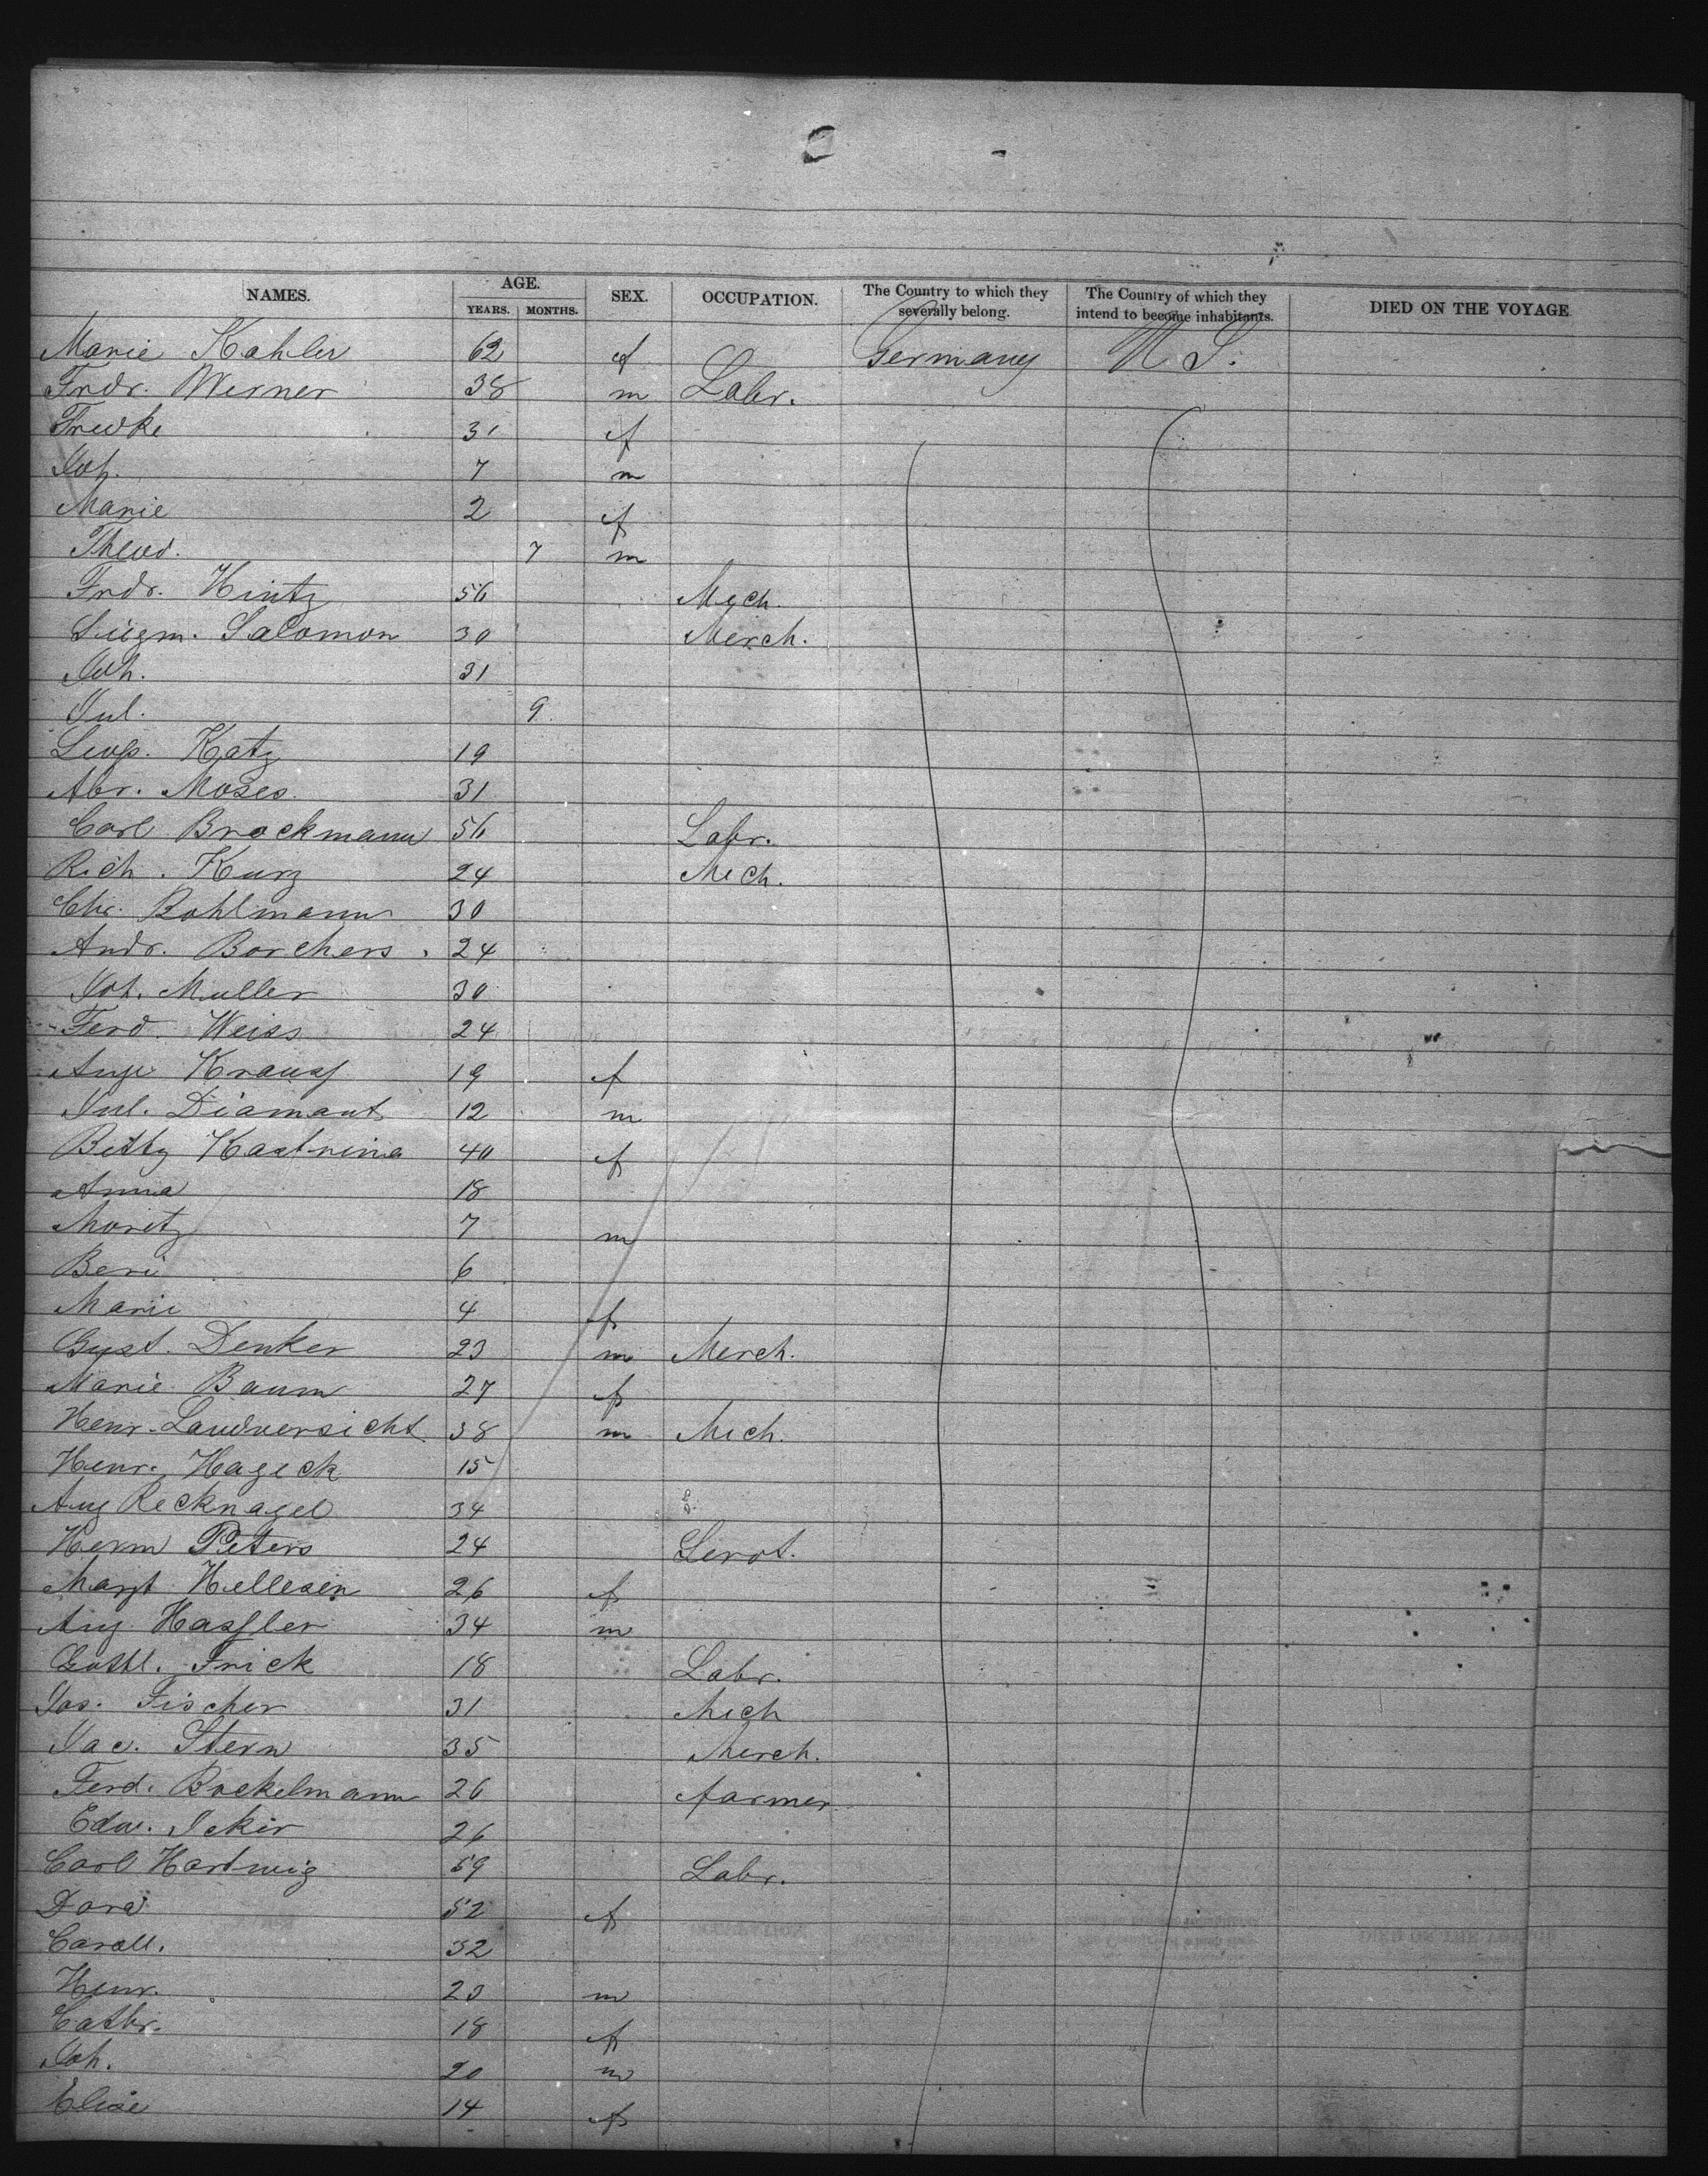 NAMES. AGE. SEX. OCCUPATION. The Country to which they severally belong. The Country of which they intend to become inhabitants. DIED ON THE VOYAGE
YEARS. MONTHS.
Marie Kahler 62 f Germany U S.
Frdr. Werner 38 m Labr.
Fredke 31 f
Joh. 7 m
Marie 2 f
Theod. 7 m
Frdr. Hintz 56 Mech.
Siegm. Salomon 30 Merch.
Joh. 31
Jul. 9
Leop. Katz 19
Abr. Moses 31
Carl Brockmann 56 Labr.
Rich. Kurz 24 Mech.
Chr. Bohlmann 30
Andr. Borchers 24
Joh. Muller 30
Ferd. Weiss 24
Krauss 19 f
Jul. Diamant 12 m
Betty 40 f
Anna 18
Moritz 7 m
6
Marie 4 f
Gust. Denker 23 m Merch.
Marie Baum 27 f
Henr. Landversicht 38 m Mech.
Henr. Hageck 15
Aug Recknagel 34
Herm Peters 24 Servt.
Margt Hellesen 26 f
Aug. Hassler 34 m
Gottl. Frick 18 Labr.
Jos. Fischer 31 Mech
Jac. Stern 35 Merch.
Ferd. Bockelmann 26 farmer
Edw. 26
Carl Hartwig 59 Labr.
Dora 52 f
32
Henr. 23 m
Cathr. 18 f
Joh. 20 m
Elise 14 f